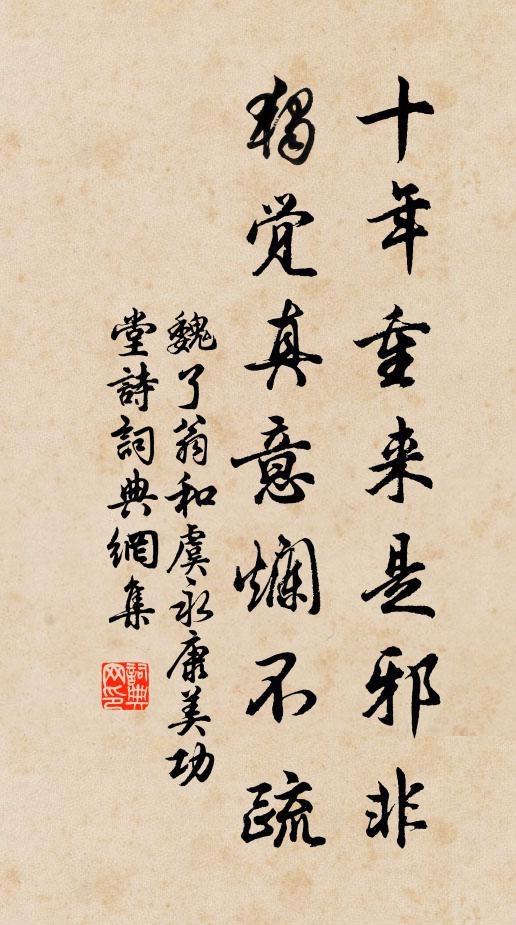 十年重来是邪非
獨觉真意爛不疏
魏了翁和虞永康美功
堂詩詞典網集
詞典网印